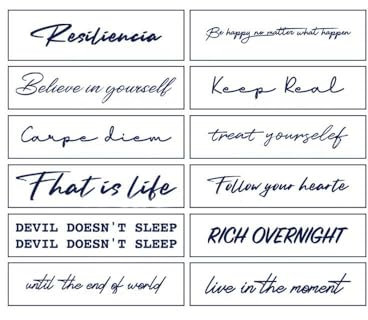 Resiliencia
Be happy no matter what happen
Believe in yourself
Keep Real
Carpe diem
treat yourselef
That is life
Follow your hearte
DEVIL DOESN'T SLEEP
DEVIL DOESN'T SLEEP
RICH OVERNIGHT
until the end of world
live in the moment